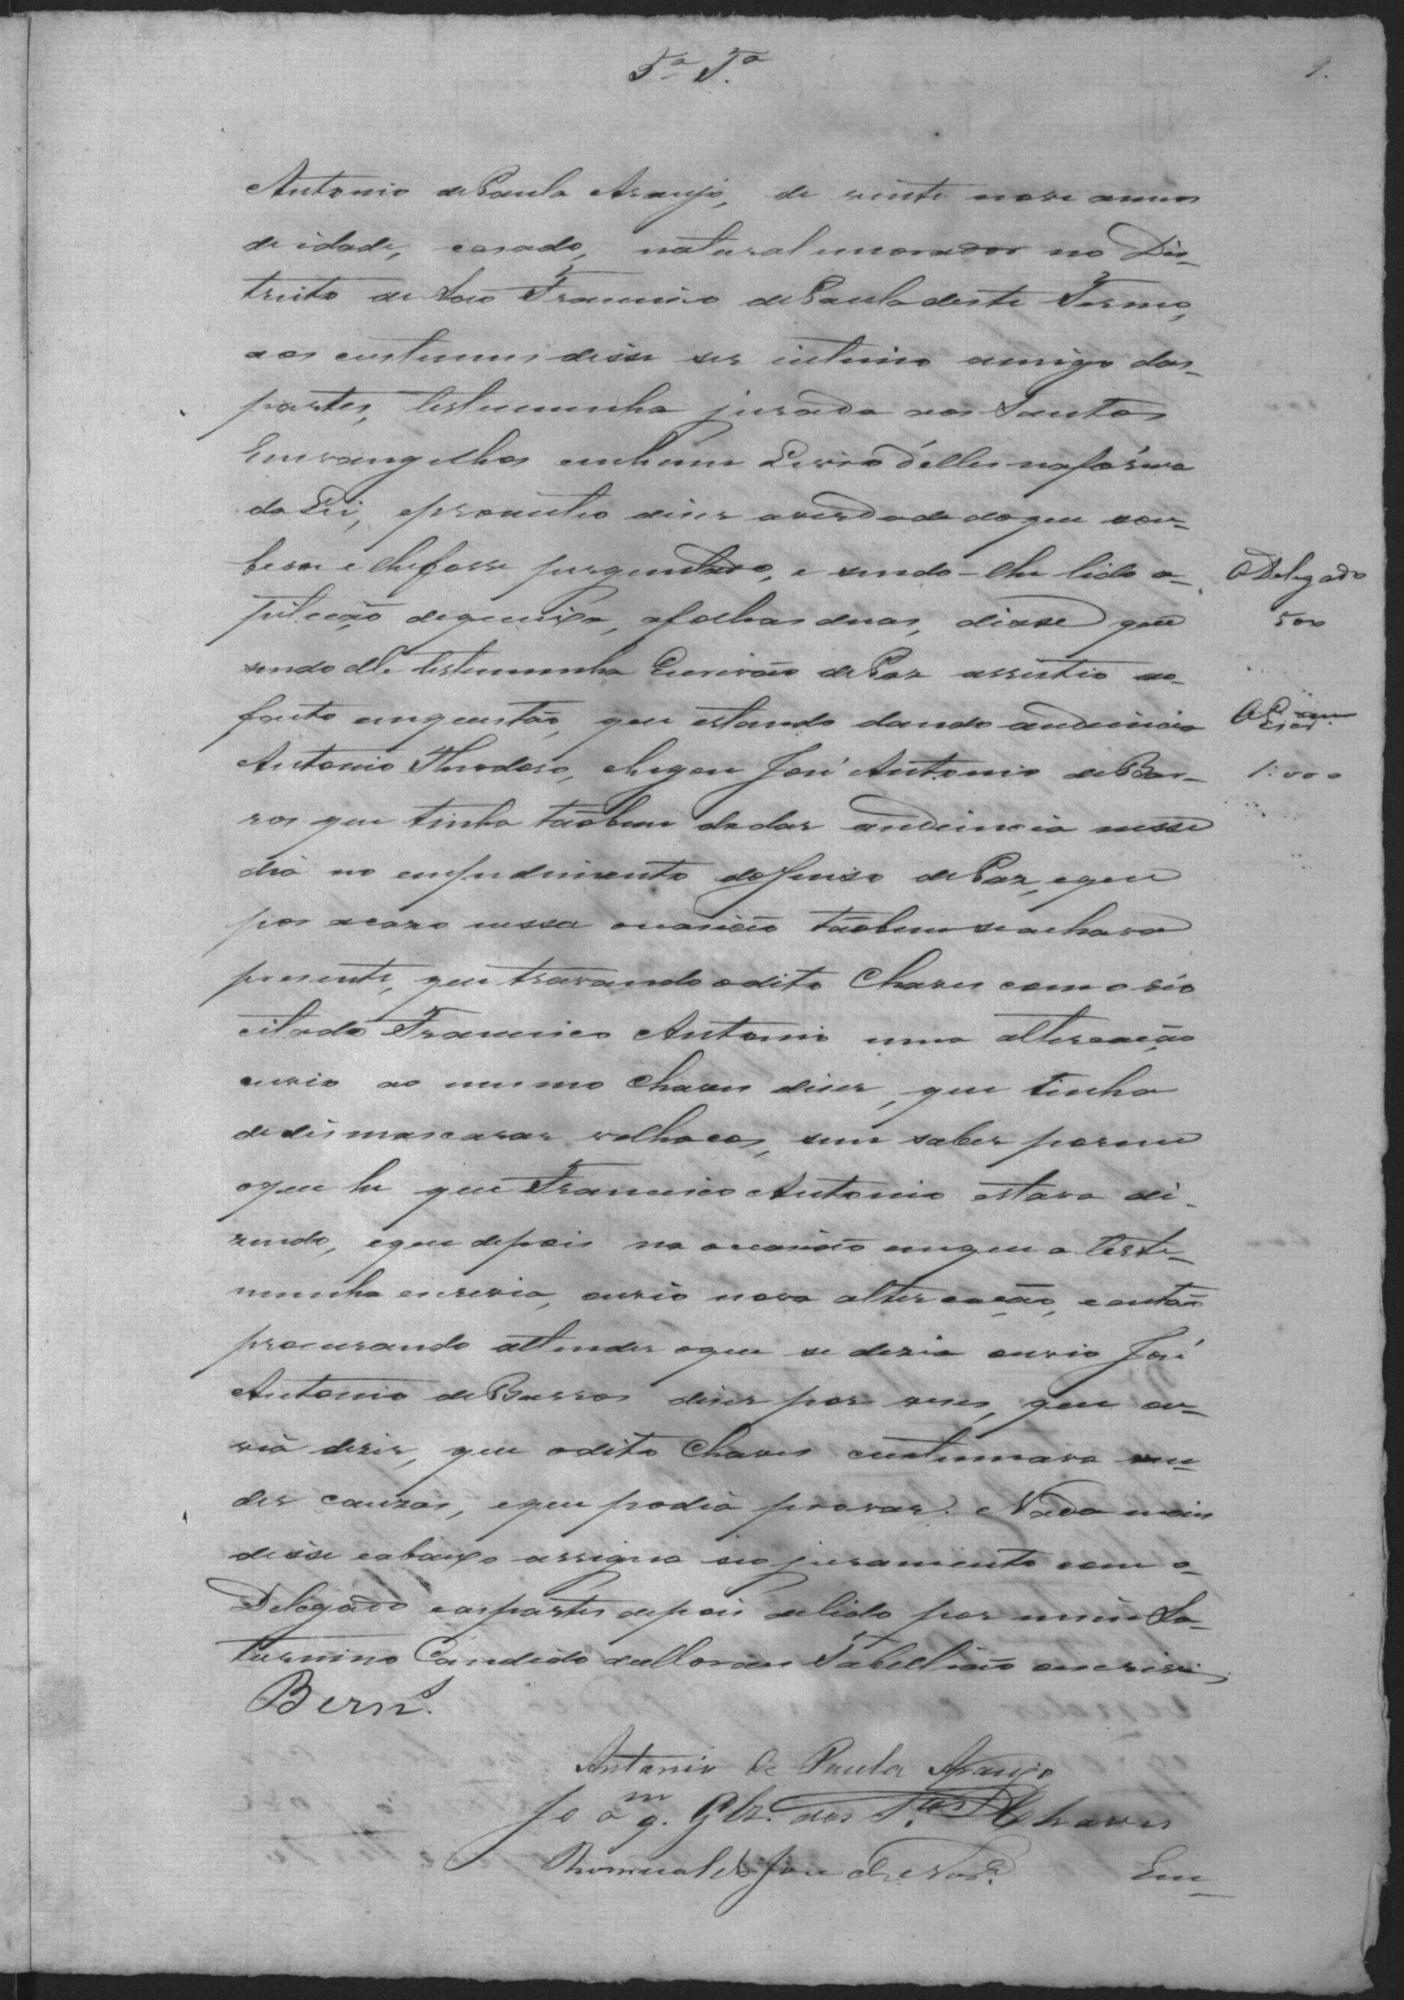 5ª Tª
9.
Antonio de Paula Araujo, de vinte nove annos
de idade, casado, natural e morador no Dis-
tricto de São Francisco de Paula deste Termo,
aos custumes disse ser intimo amigo das
partes, testemunha jurada aos Santos
Evangelhos em hum Livro d'elles na fórma
da Lei, e prometeo diser a verdade do que sou-
besse e lhe fosse perguntado, e sendo-lhe lido a
petição de queixa, a folhas duas, disse que
sendo elle testemunha Escrivão de Paz assistio ao
facto em questão, que estando dando audiencia
Antonio Theodoro, chegou José Antonio de Bar-
ros que tinha tãobem de dar audiencia nesse
dia no empedimento do Juiso de Paz, e que
por acazo nessa occasião tãobem se achava
presente, que travando o dito Chaves com o réo
citado Francisco Antonio uma altercação
ouvio ao mesmo Chaves diser, que tinha
de desmascarar velhacos, sem saber porem
o que he que Francisco Antonio estava di-
zendo, e que depois na occasião em que a teste-
munha escrevia, ouvio nova altercação, e então
procurando attender o que se dezia ouvio José
Antonio de Barros diser por veses, que ou-
via dizer, que o dito Chaves custumava ven-
der causas, e que podia provar. Nada mais
disse e abaixo assigna seo juramento com o
Delegado e as partes depois de lido por mim Sa-
turnino Candido de Moraes Tabellião o escrevi
Bern.
Antonio de Paula Araujo
Joaqm. Glz. dos Stos Chaves
Romualdo José
Em-
O Delegado
500
O Escr.
1:000